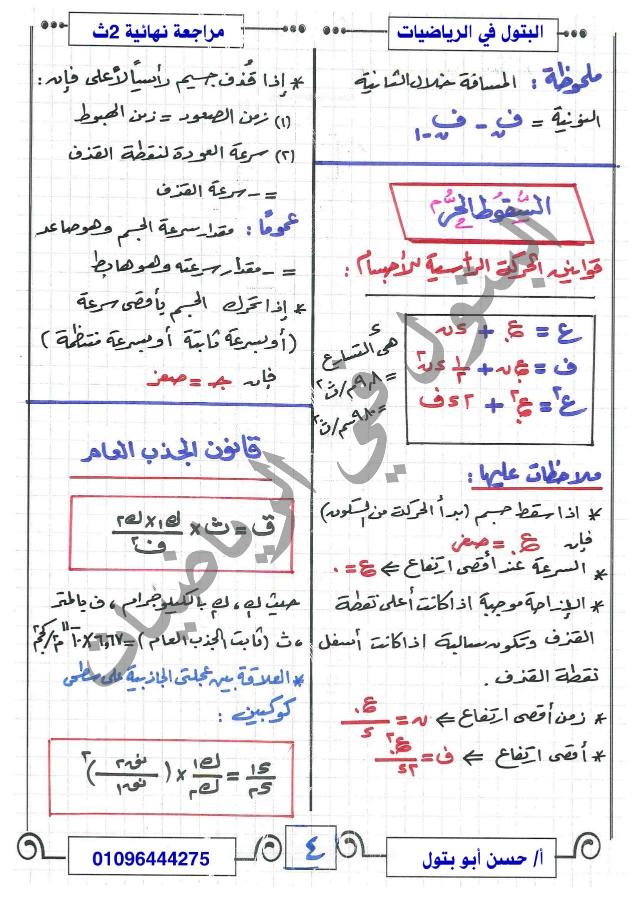 البتول في الرياضيات
مراجعة نهائية 2ث
ملحوظة : المسافة خلال الثانية
النونية = ف‌ن - ف‌ن-١
السقوط الحر
قوانين الحركة الرأسية للأجسام :
ع = ع. + ء ن
ف = ع. ن + ١/٢ ء ن٢
ع٢ = ع.٢ + ٢ ء ف
ء
هى التسارع
= ٩٫٨ م/ث٢
= ٩٨٠ سم/ث٢
ملاحظات عليها :
* اذا سقط جسم (بدأ الحركة من السكون)
فإن ع. = صفر
* السرعة عند أقصى ارتفاع ⇐ ع = ٠
* الإزاحة موجبة اذا كانت أعلى نقطة
القذف وتكون سالبة اذا كانت أسفل
نقطة القذف .
* زمن أقصى ارتفاع ⇐ ن = ع. / ء
* أقصى ارتفاع ⇐ ف = ع.٢ / ٢ء
* إذا قذف جسم رأسياً لأعلى فإن :
(١) زمن الصعود = زمن الهبوط
(٢) سرعة العودة لنقطة القذف
= - سرعة القذف
عمومًا : مقدار سرعة الجسم وهو صاعد
= - مقدار سرعته وهو هابط
* إذا تحرك الجسم بأقصى سرعة
(أو بسرعة ثابتة أو بسرعة منتظمة)
فإن جـ = صفر
قانون الجذب العام
ق = ث × ك١ × ك٢ / ف٢
حيث ك١ ، ك٢ بالكيلوجرام ، ف بالمتر
، ث (ثابت الجذب العام) = ٦٫٦٧ × ١٠-١١ م٣/كجم
* العلاقة بين عجلتى الجاذبية على سطحى
كوكبين :
ء١ / ء٢ = ك١ / ك٢ × (نق٢ / نق١)٢
البتول في الرياضيات
أ/ حسن أبو بتول
٤
01096444275